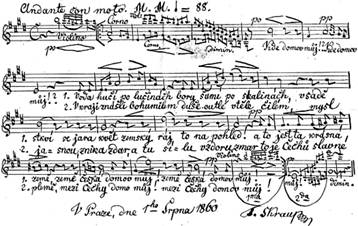 Andante con moto. M. M. ♩ = 88.
Corno pp
Violino Corno Dimin. Kde domov můj? Kde domov
můj? 1. Voda hučí po lučinách bory šumí po skalinách, v sadě
2. V kraji znášli bohumilém duše outlé v těle čilém, mysl
1. stkví se jara květ zemský ráj to na pohled! a to jest ta krásná,
2. jasnou, znik a zdar, a tu sílu vzdoru zmar to je Čechů slavné
1. země, země česká domov můj země česká domov můj!
2. plémě, mezi Čechy domov můj! mezi Čechy domov můj!
V Praze, dne 1ho Srpna 1860 F. Škraup